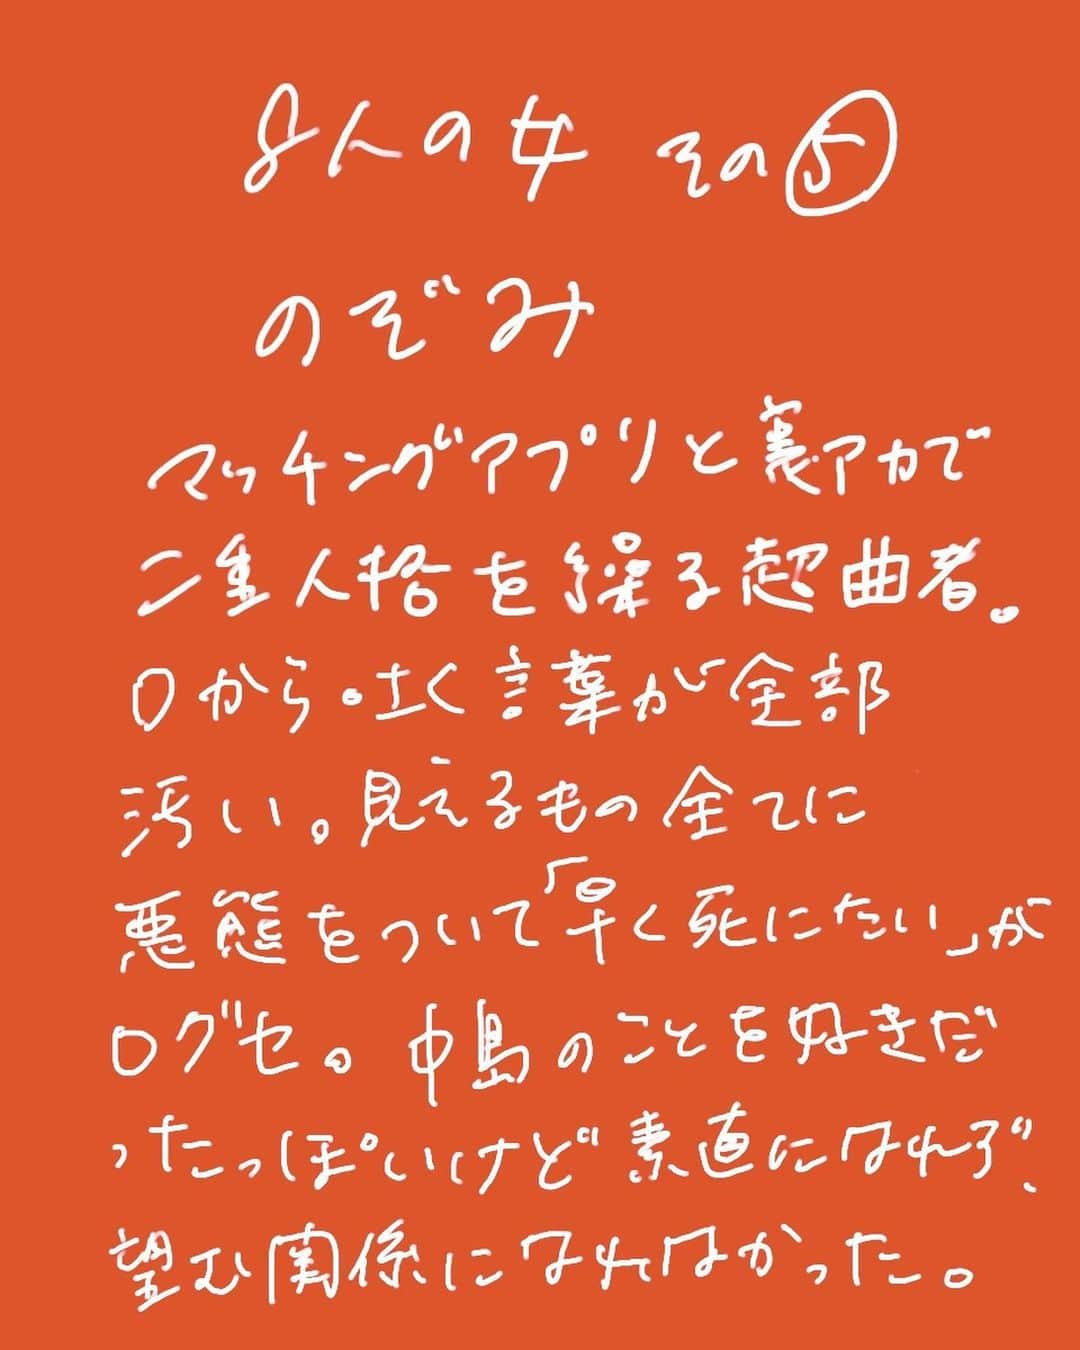 8人の女 その⑤
のぞみ
マッチングアプリと裏アカで
二重人格を操る超曲者。
口から吐く言葉が全部
汚い。見えるもの全てに
悪態をついて「早く死にたい」が
口グセ。中島のことを好きだ
ったっぽいけど素直になれず、
望む関係になれなかった。